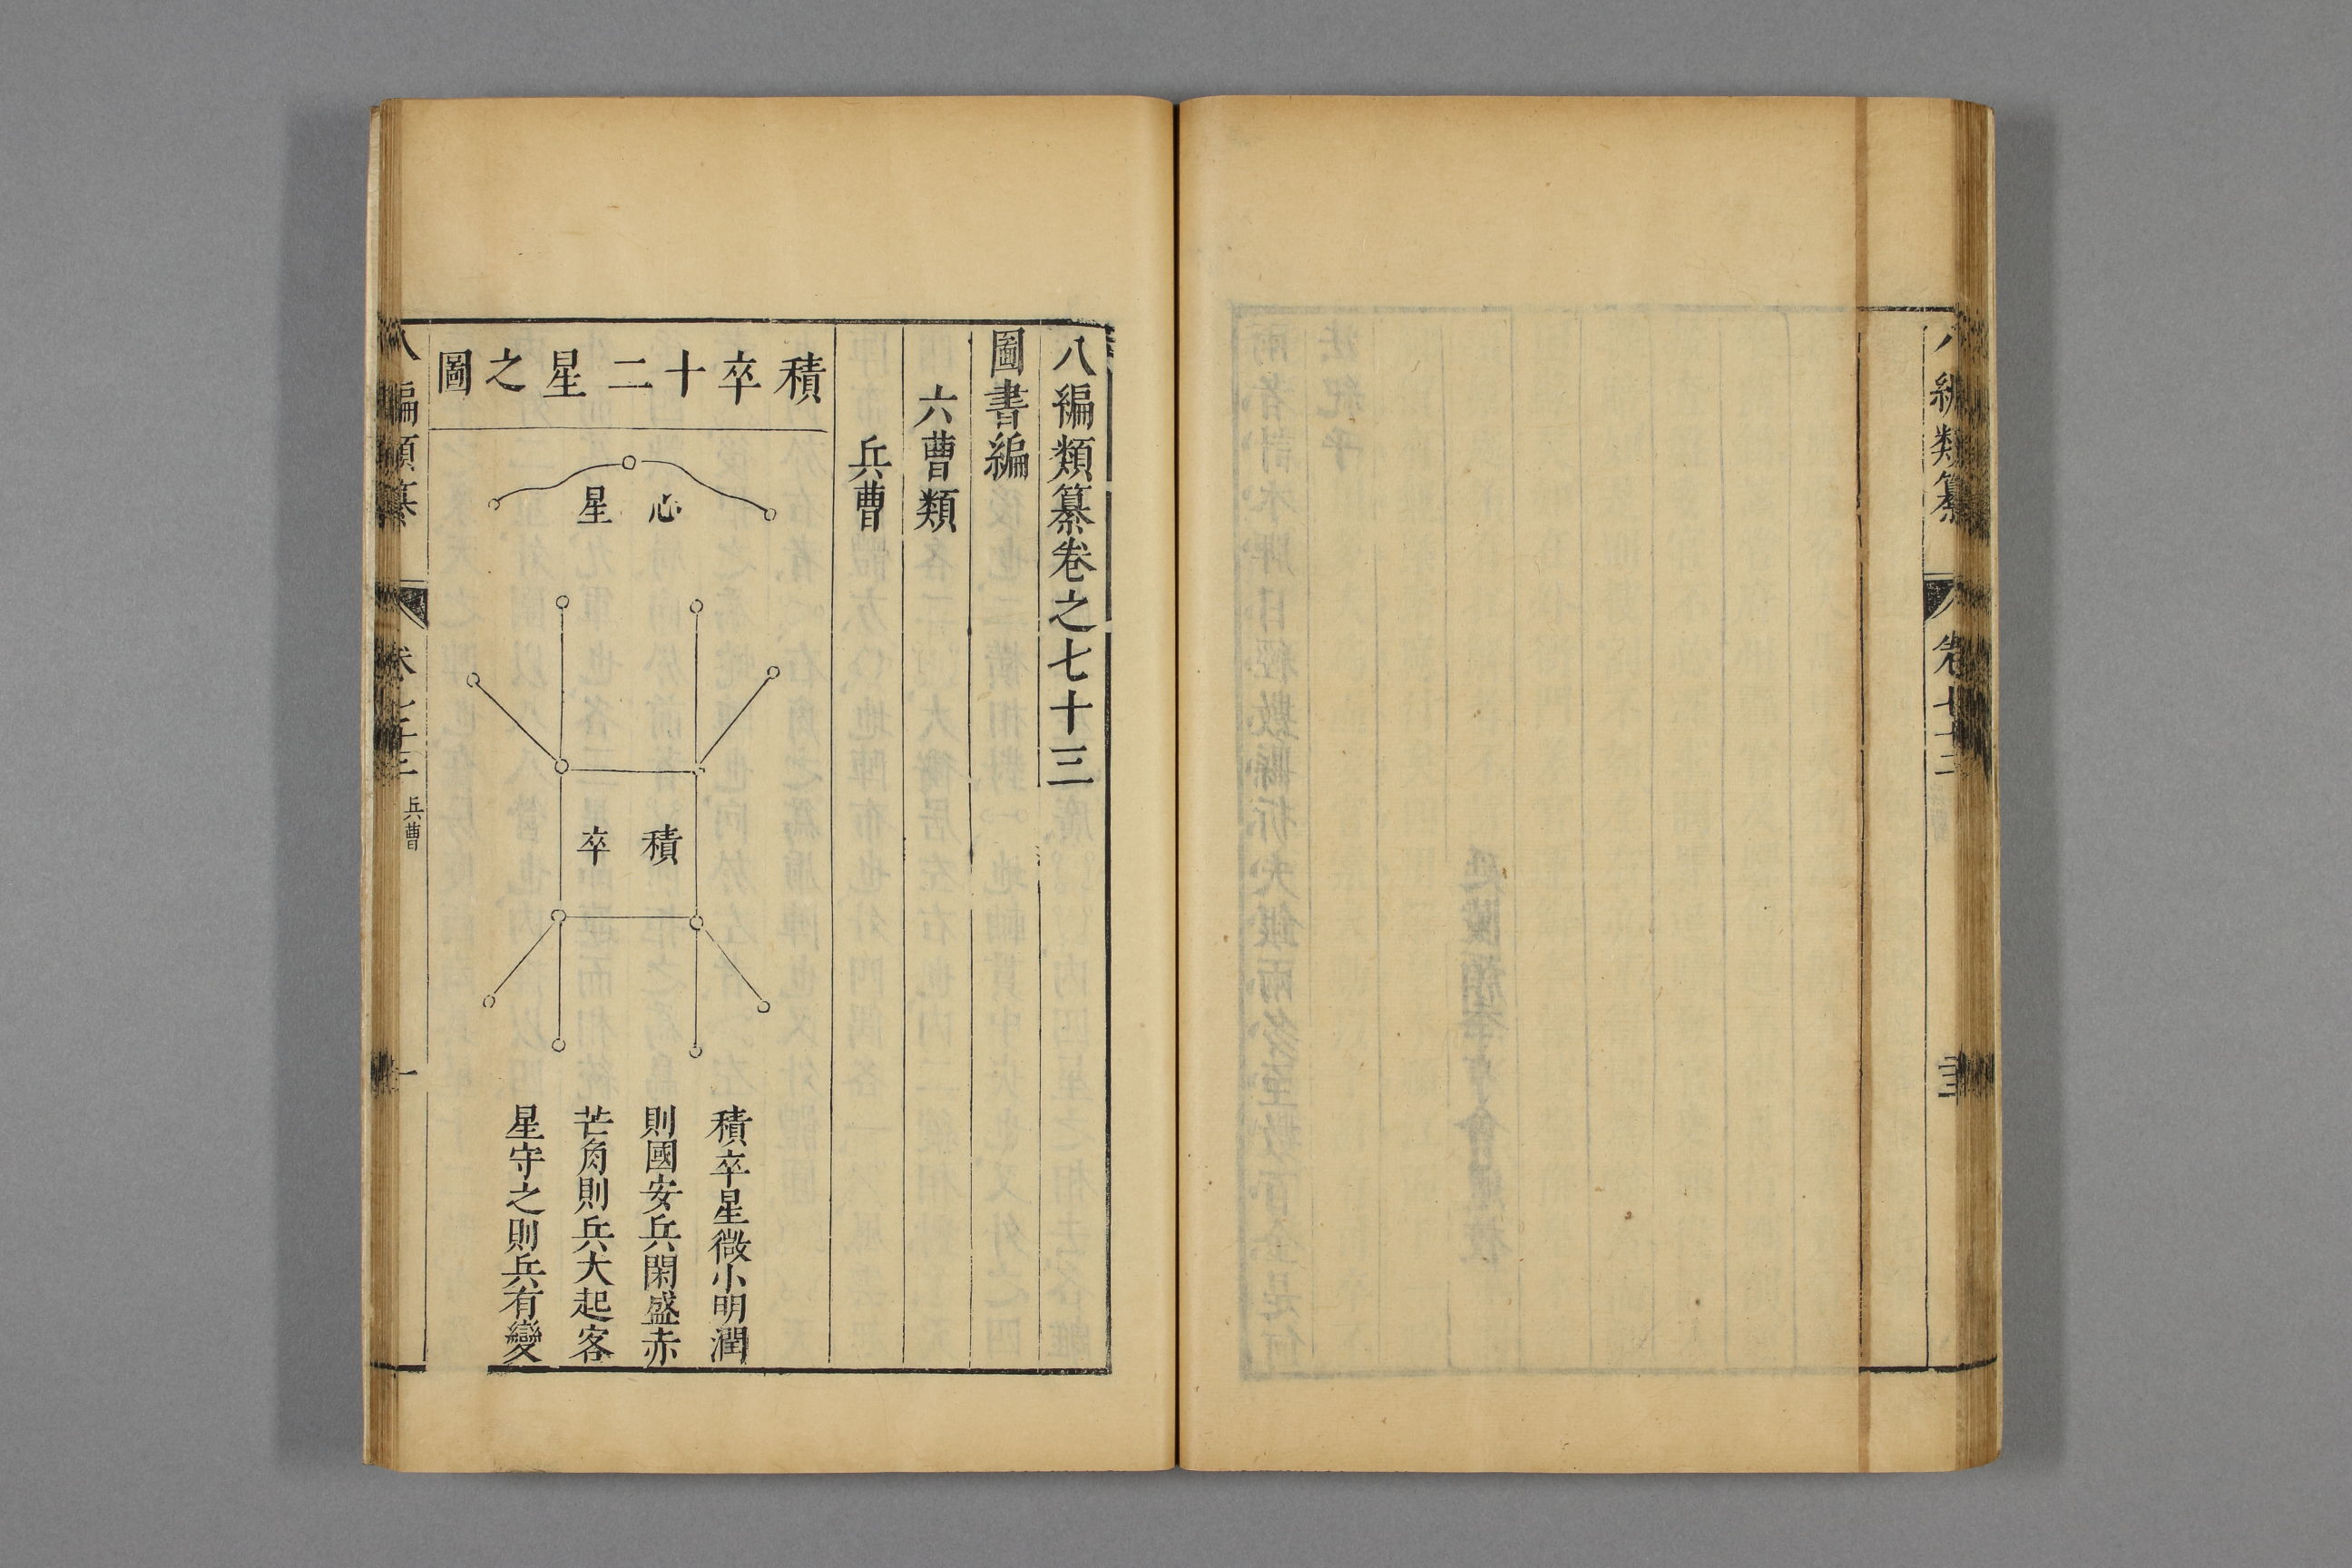 八編類纂
八編類纂卷之七十三
圖書編
六曹類
兵曹
積卒十二星之圖
心星
積卒
積卒星微小明潤
則國安兵閑盛赤
芒角則兵大起客
星守之則兵有變
八編類纂
卷七十三
兵曹
一